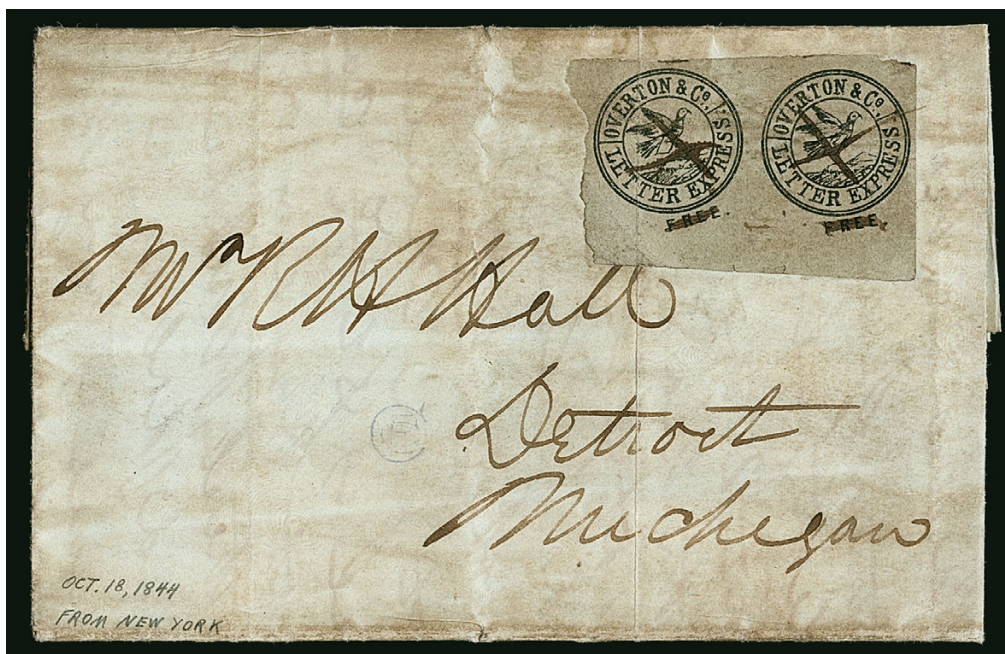 OVERTON & Co.'S LETTER EXPRESS
FREE.
OVERTON & Co.'S LETTER EXPRESS
FREE.
Mr R H Hall
Detroit
Michegan
OCT. 18, 1844
FROM NEW YORK